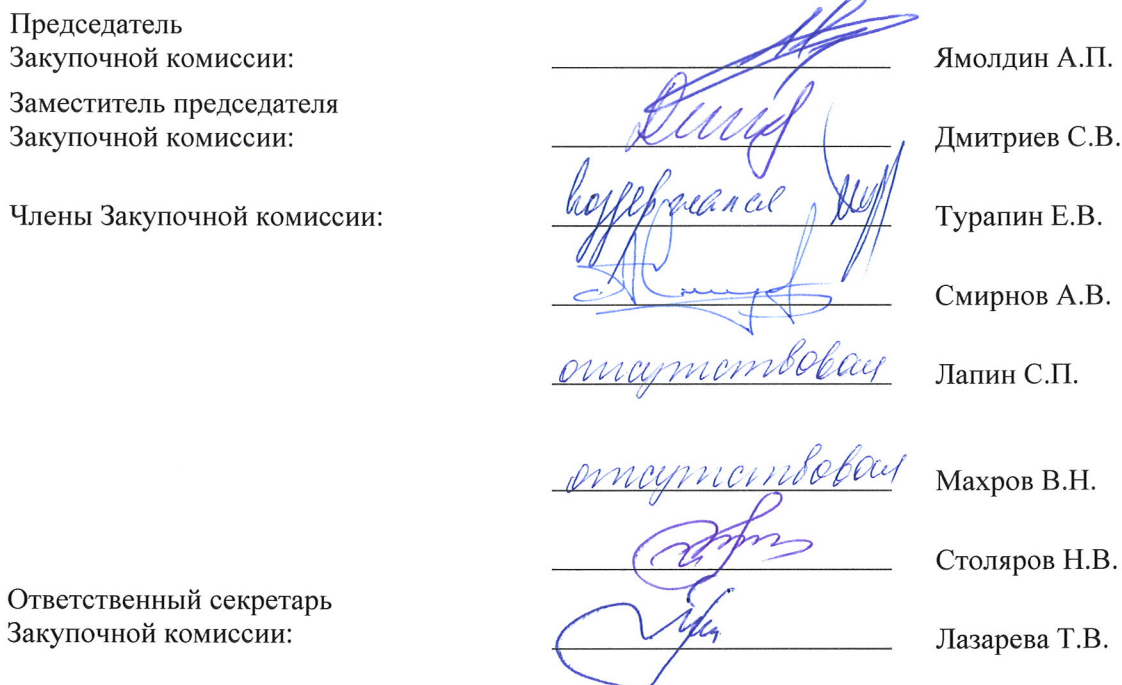 Председатель
Закупочной комиссии: Ямолдин А.П.
Заместитель председателя
Закупочной комиссии: Дмитриев С.В.
Члены Закупочной комиссии: воздержался Турапин Е.В.
Смирнов А.В.
отсутствовал Лапин С.П.
отсутствовал Махров В.Н.
Столяров Н.В.
Ответственный секретарь
Закупочной комиссии: Лазарева Т.В.